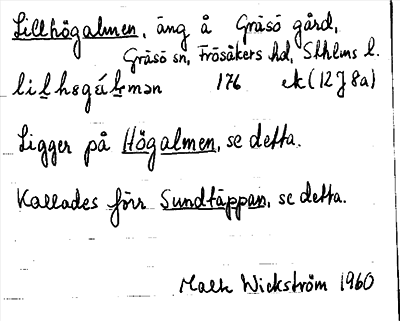 Lillhögalmen, äng å Gräsö gård,
Gräsö sn, Frösåkers hd, Sthlms l.
176 ek (12J 8a)
Ligger på Högalmen, se detta.
Kallades förr Sundtäppan, se detta.
Wickström 1960